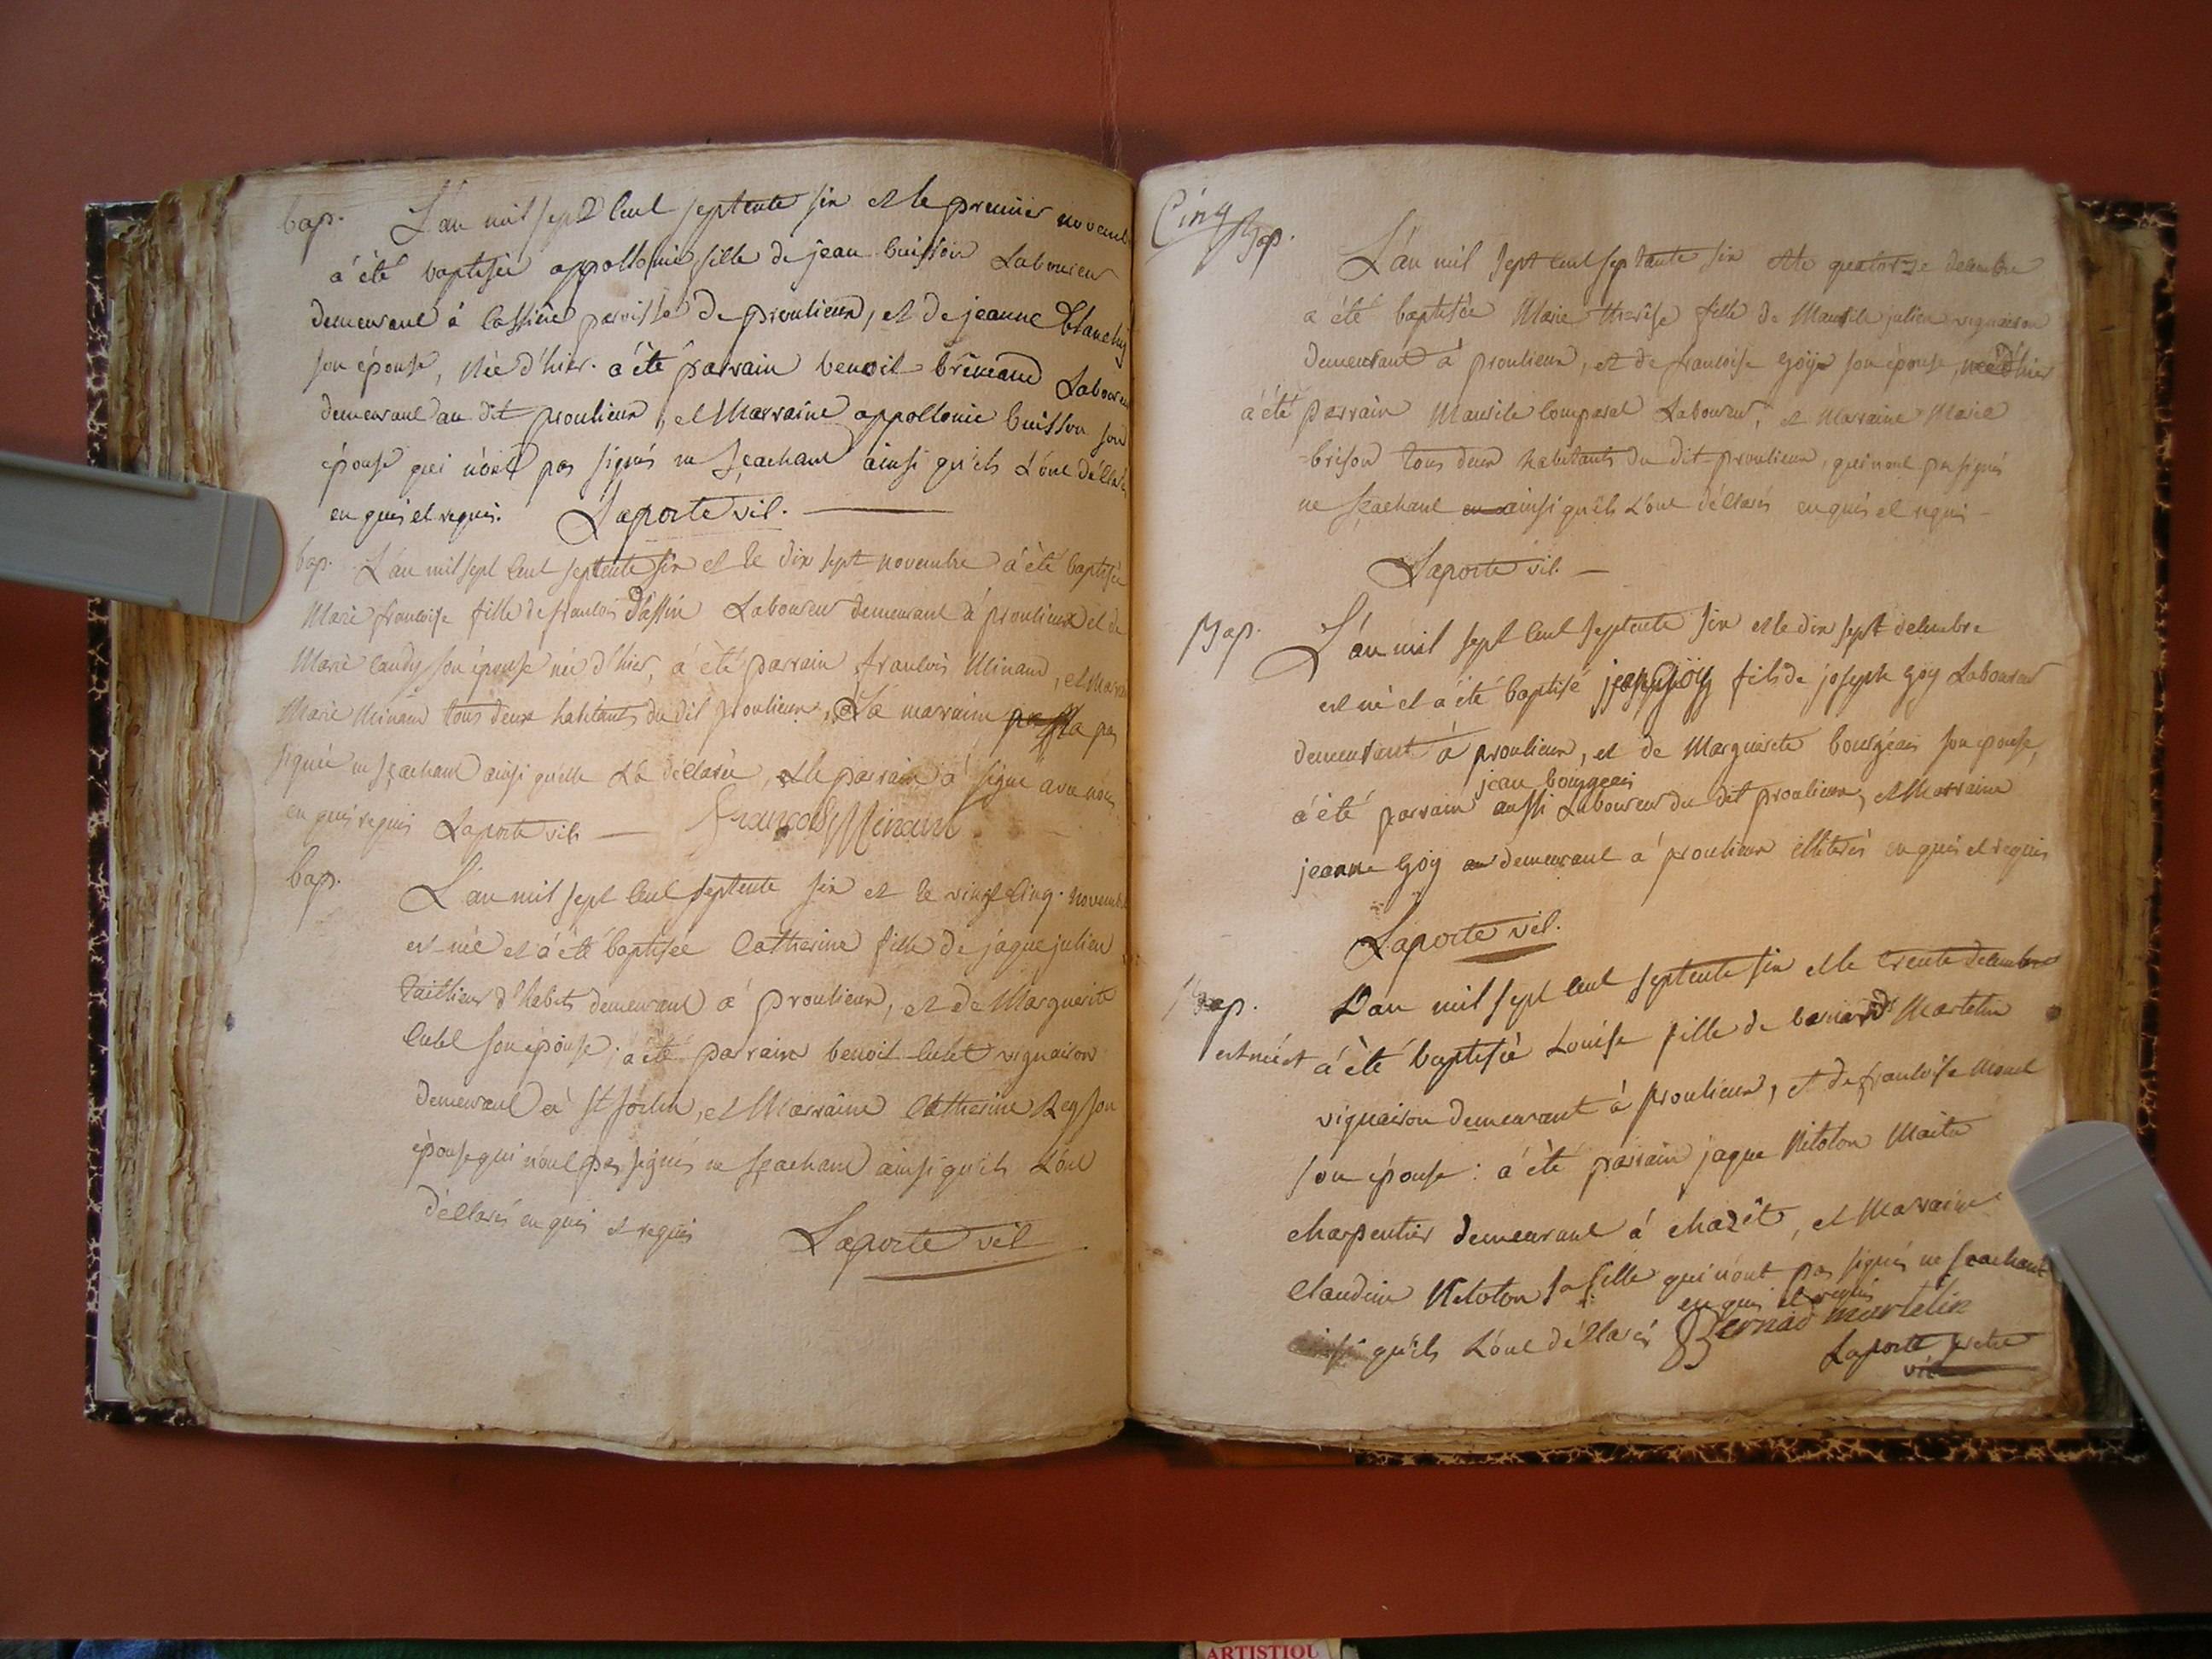 bap. L'an mil sept cent septente six et le premier novemb
a été baptisée appollonie fille de jean buisson Laboureur
demeurant à lassine paroisse de proulieux, et de jeanne blanchy
son épouse, Née d'hier. a été parrain benoit brémand Laboureur
demeurant au dit proulieux, et Marraine appollonie buisson son
épouse qui n'ont pas signés ne sçachant ainsi qu'ils L'ont déclaré
enquis et requis. Laporte vic.
bap. L'an mil sept cent septente six et le dix sept novembre a été baptisée
Marie françoise fille de francois dassin Laboureur demeurant à proulieux et de
Marie caudy son épouse née d'hier, a été parrain francois Minand, et Marraine
Marie Minand tous deux habitants du dit proulieux, La marraine n'a pas
signée ne sçachant ainsi qu'elle L'a déclarée, et le parrain a signé avec nous
enquis requis Laporte vic. françois Minand
bap. L'an mil sept cent septente six et le vingt cinq novemb
est née et a été baptisée Catherine fille de jaque julien
tailleur d'habits demeurant à proulieux, et de Marguerite
cutet son épouse; a été parrain benoit cutet vignairon
demeurant à St Sorlin, et Marraine Catherine Rey son
épouse qui n'ont pas signés ne sçachant ainsi qu'ils L'ont
déclarés enquis et requis Laporte vic
Cinq
Bap. L'an mil sept cent septante six et le quatorze decembre
a été baptisée Marie thérèse fille de Maurile julien vignairon
demeurant à proulieux, et de francoise Goÿ son épouse, née d'hier
a été parrain Maurile comparat Laboureur, et Marraine Marie
brison tous deux habitants du dit proulieux, qui n'ont pas signés
ne sçachant ainsi qu'ils L'ont déclarés enquis et requis
Laporte vic.
Bap. L'an mil sept cent septente six et le dix sept decembre
est né et a été baptisé jean Goÿ fils de joseph goy Laboureur
demeurant à proulieux, et de Marguerete bourgeais son épouse,
jean bourgeais
a été parrain aussi Laboureur du dit proulieux, et Marraine
jeanne Goy demeurant à proulieux illiterés enquis et requis
Laporte vic.
Bap. L'an mil sept cent septente six et le trente decembre
est née et a été baptisée Louise fille de bernard Martelin
vignairon demeurant à proulieux, et de francoise Monet
son épouse: a été parrain jaque Nitolon Maitre
charpentier demeurant à chazêt, et Marraine
Claudine Nitolon sa fille qui n'ont pas signés ne sçachant
enquis et requis
ainsi qu'ils L'ont déclarés Bernad martelin
Laporte pretre
vic
ARTISTIQU